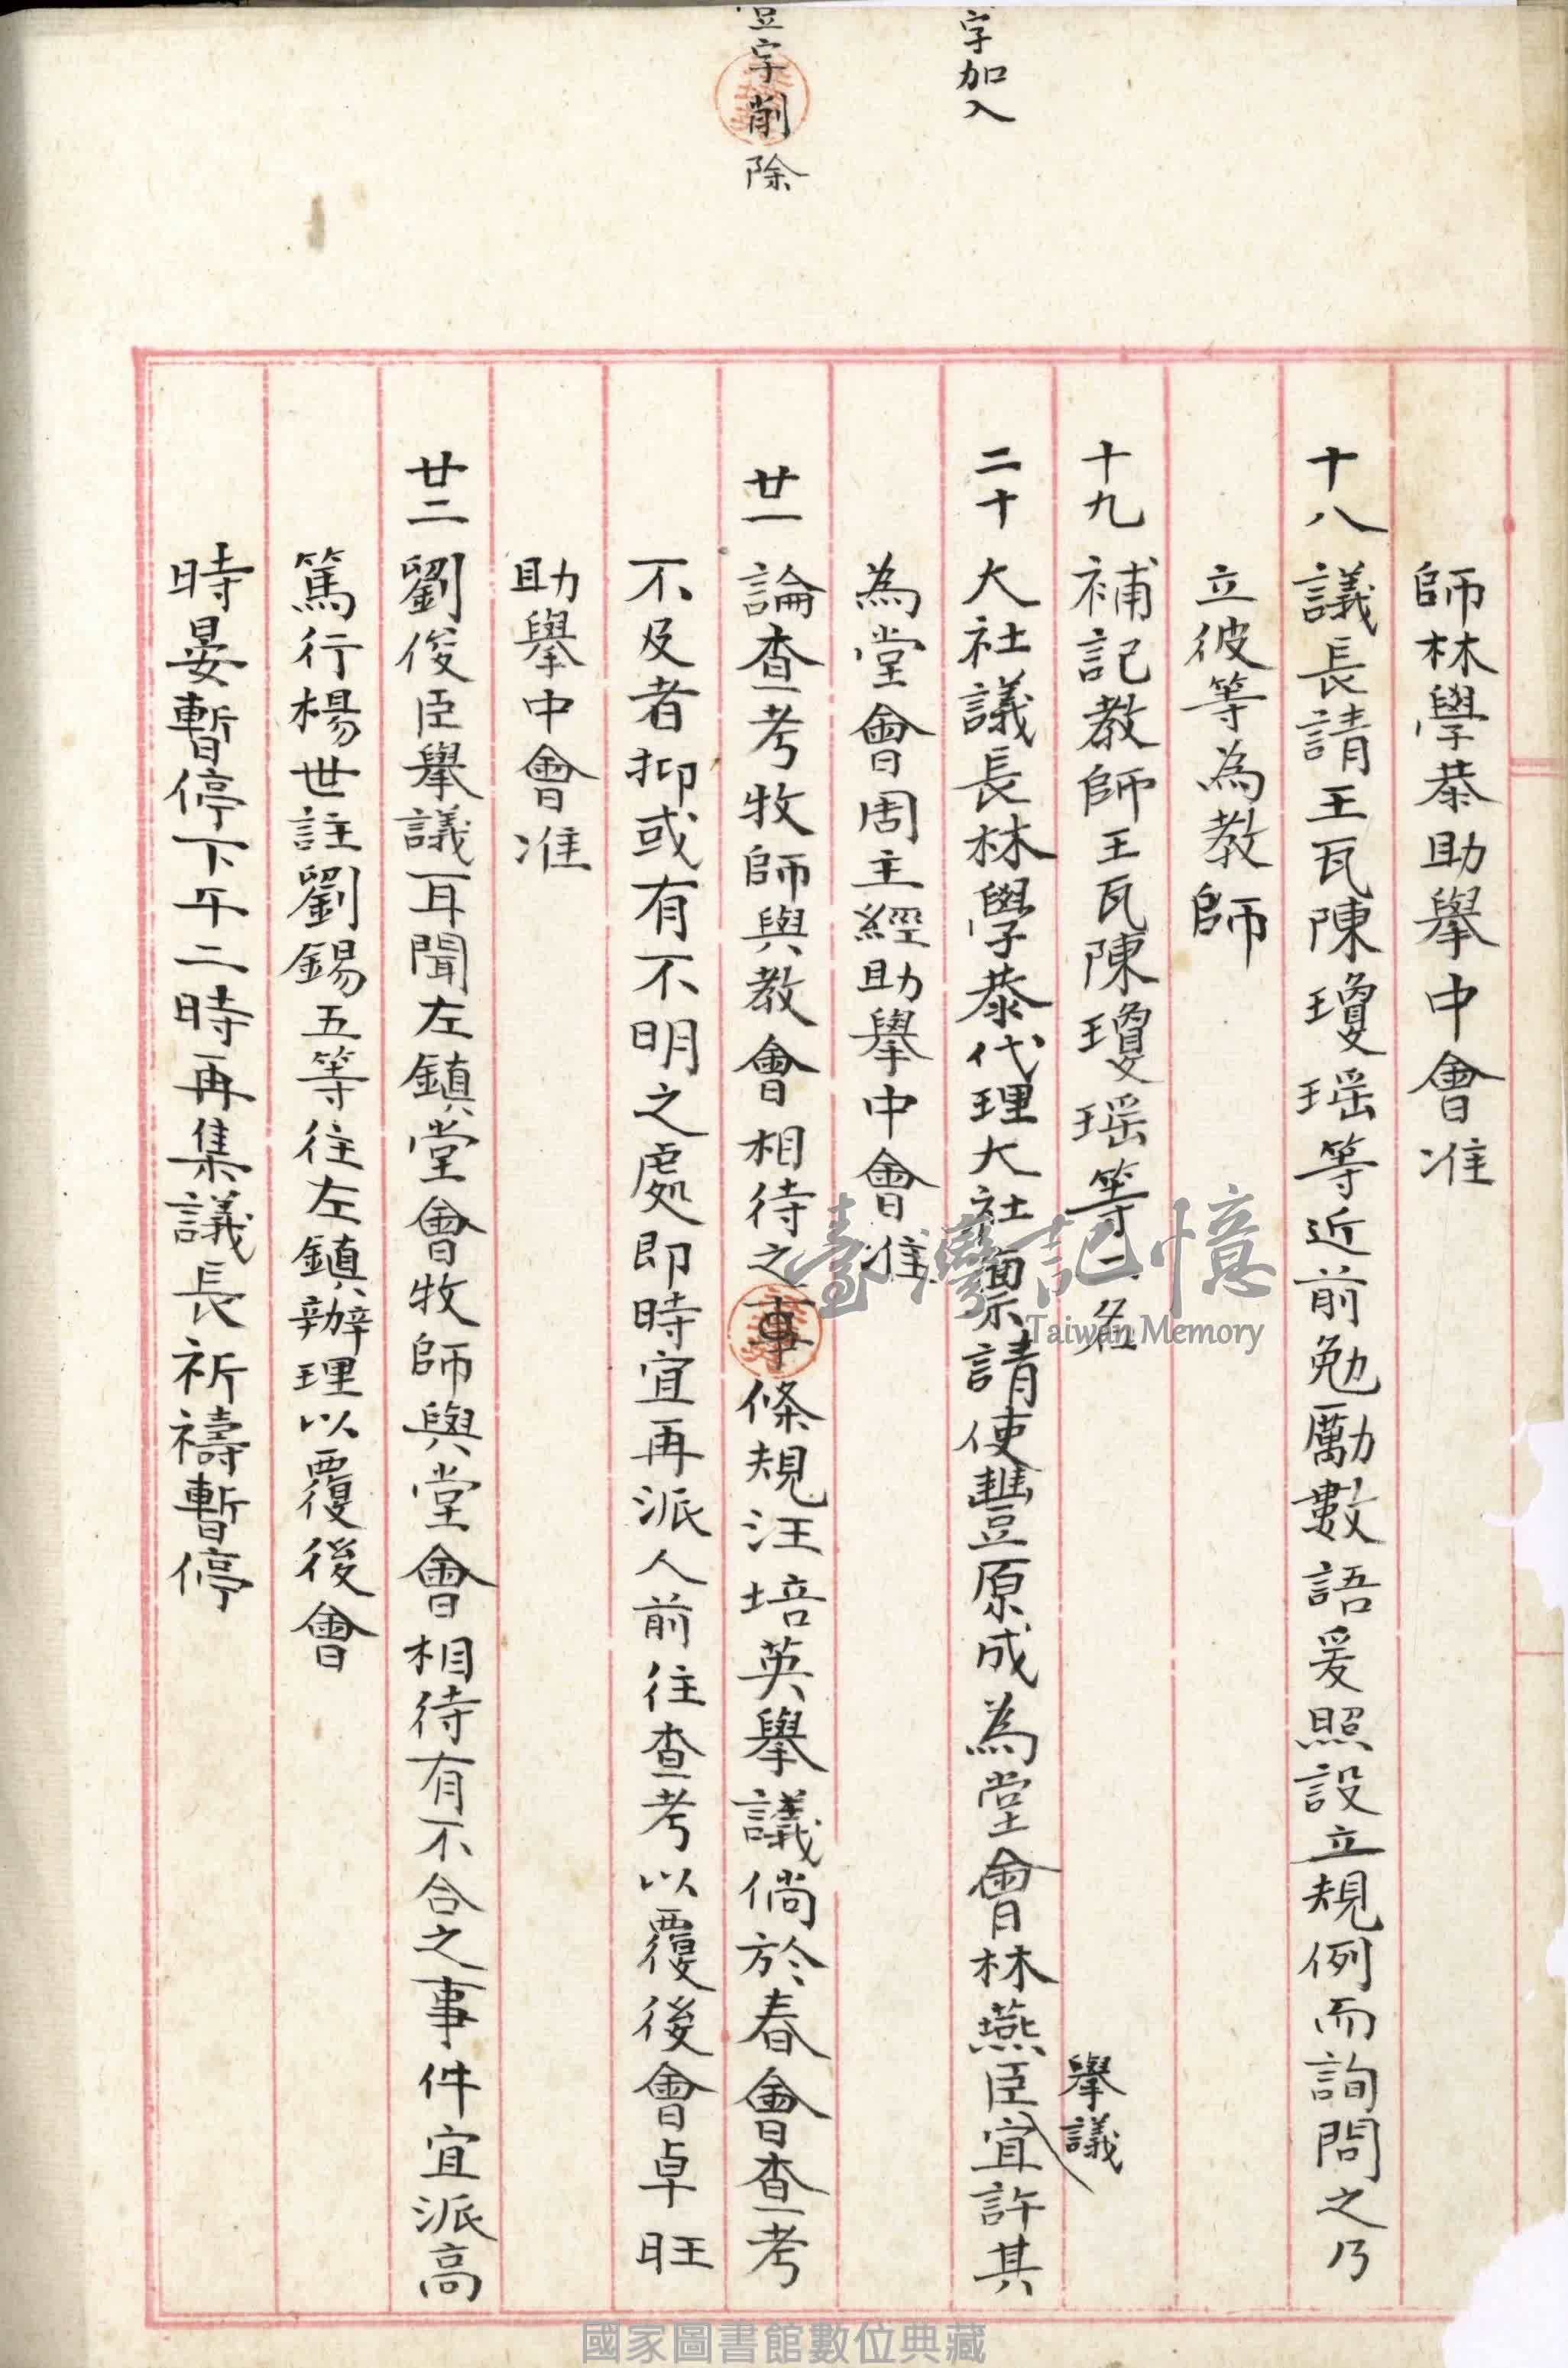 字加入
字削除
師林學恭助舉中會准
十八 議長請王瓦陳瓊瑶等近前勉勵數語爰照設立規例而詢問之乃
立彼等為教師
十九 補記教師王瓦陳瓊瑶等二名
舉議
二十 大社議長林學恭代理大社面禀請使豐原成為堂會林燕臣宜許其
為堂會周主經助舉中會准
廿一 論查考牧師與教會相待之事條規汪培英舉議倘於春會查考
不及者抑或有不明之處即時宜再派人前往查考以覆後會卓旺
助舉中會准
廿二 劉俊臣舉議耳聞左鎮堂會牧師與堂會相待有不合之事件宜派高
篤行楊世註劉錫五等往左鎮辦理以覆後會
時晏暫停下午二時再集議長祈禱暫停
臺灣記憶
Taiwan Memory
國家圖書館數位典藏